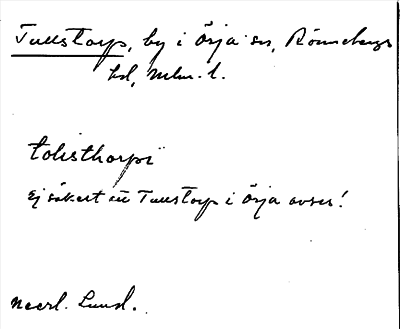 Tullstorp, by i Örja sn, Rönnebergs
hd, Mlm. l.
tolisthorpi
Ej säkert att Tullstorp i Örja avses!
Necr. Lund.